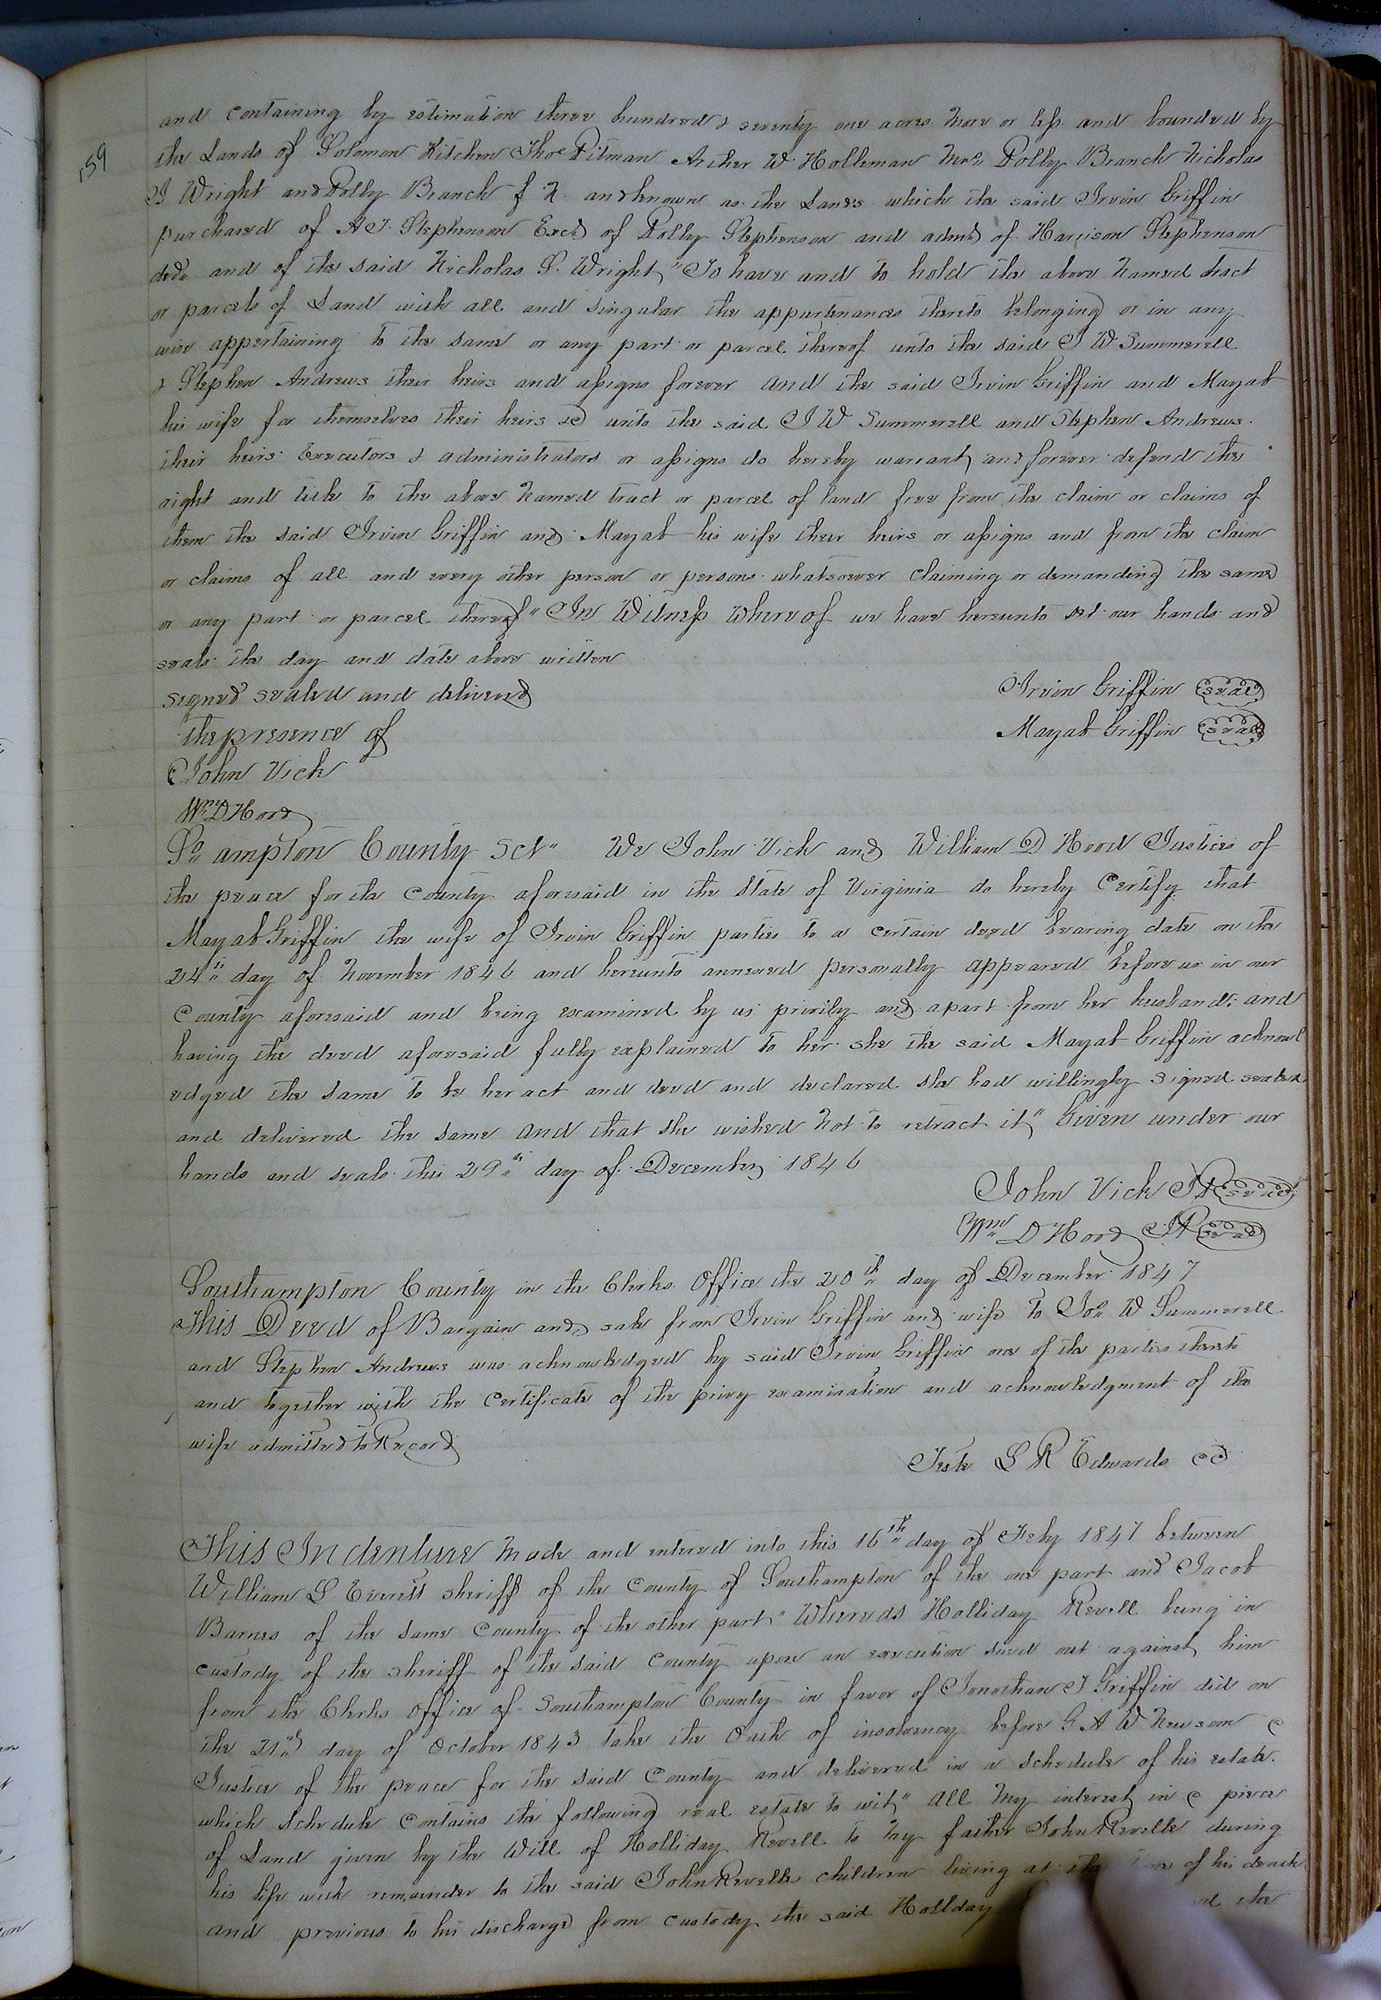 159
and containing by estimation three hundred & seventy one acres more or less and bounded by
the Lands of Solomon Kitchen Thos Pitman Arther W. Holleman Mrs Polly Branch Nicholas
S Wright and Polly Branch f N. and known as the Lands which the said Irvin Griffin
purchased of A J. Stephenson Exer of Polly Stephenson and admr of Harrison Stephenson
decd and of the said Nicholas S. Wright, "To have and to hold the above named tract
or parcels of Land with all and singular the appurtenances thereto belonging or in any
wise appertaining to the same or any part or parcel thereof unto the said J W Summerell
& Stephen Andrews their heirs and assigns forever and the said Irvin Griffin and Mazab
his wife for themselves their heirs &c unto the said J W Summerell and Stephen Andrews.
their heirs Executors & administrators or assigns do hereby warrant and forever defend the
right and title to the above named tract or parcel of land free from the claim or claims of
them the said Irvin Griffin and Mazab his wife their heirs or assigns and from the claim
or claims of all and every other person or persons whatsoever claiming or demanding the same
or any part or parcel thereof" In Witness Whereof we have hereunto set our hands and
seals the day and date above written
signed sealed and delivered
the presence of
John Vick
Wm D Hood
Irvin Griffin seal
Mazab Griffin seal
So ampton County Sct" We John Vick and William D Hood Justices of
the peace for the County aforesaid in the State of Virginia do hereby Certify that
Mazab Griffin the wife of Irvin Griffin parties to a certain deed bearing date on the
24th day of November 1846 and hereunto annexed personally appeared before us in our
County aforesaid and being examined by us privily and apart from her husband: and
having the deed aforesaid fully explained to her she the said Mazab Griffin acknowl
edged the same to be her act and deed and declared she had willingly signed sealed
and delivered the same and that she wished not to retract it" Given under our
hands and seals this 29th day of December 1846
John Vick JP seal
Wm D Hood JP seal
Southampton County in the Clerks Office the 20th day of December 1847
This Deed of Bargain and sale from Irvin Griffin and wife to Jos W Summerell
and Stephen Andrews was acknowledged by said Irvin Griffin one of the parties thereto
and together with the Certificate of the privy examination and acknowledgment of the
wife admitted to Record
Teste L R Edwards cc
This Indenture Made and entered into this 16th day of Feby 1847 between
William S. Everett sheriff of the County of Southampton of the one part and Jacob
Barnes of the same County of the other part" Whereas Holliday Revell being in
custody of the sheriff of the said County upon an execution sued out against him
from the Clerks office of Southampton County in favor of Jonathan J Griffin did on
the 21st day of October 1843 take the Oath of insolvency before G. A W Newsom a
Justice of the peace for the said County and delivered in a schedule of his estate.
which schedule contains the following real estate to wit" All my interest in a piece
of Land given by the Will of Holliday Revell to my father John Revelle during
his life with remainder to the said John Revells children living at the time of his death
and previous to his discharge from custody the said Holliday the